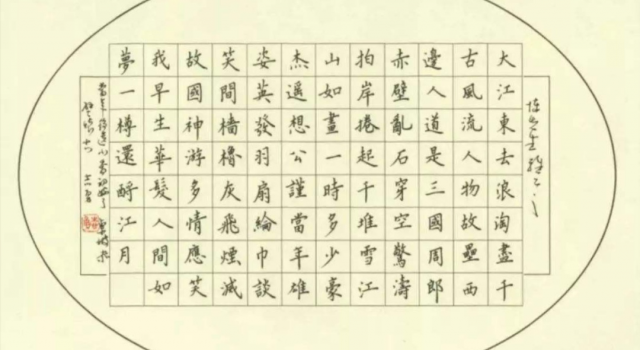 大江東去浪淘盡千
古風流人物故壘西
邊人道是三國周郎
赤壁亂石穿空驚濤
拍岸捲起千堆雪江
山如畫一時多少豪
杰遥想公謹當年雄
姿英發羽扇綸巾談
笑間檣櫓灰飛煙滅
故國神游多情應笑
我早生華髮人間如
夢一樽還酹江月